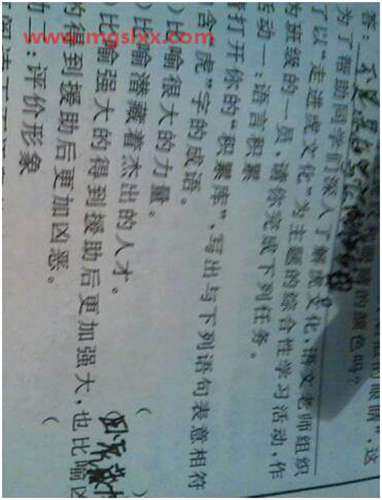 www.mgslxx.com
眼睛”,这
的颜色吗?
答:
为了帮助同学们深入了解虎文化,语文老师组织
了以“走进虎文化”为主题的综合性学习活动,作
为班级的一员,请你完成下列任务。
活动一:语言积累
打开你的“积累库”,写出与下列语句表意相符
含“虎”字的成语。
)比喻很大的力量。
)比喻潜藏着杰出的人才。 (
)比喻强大的得到援助后更加强大,也比喻凶
的得到援助后更加凶恶。 (
动二:评价形象